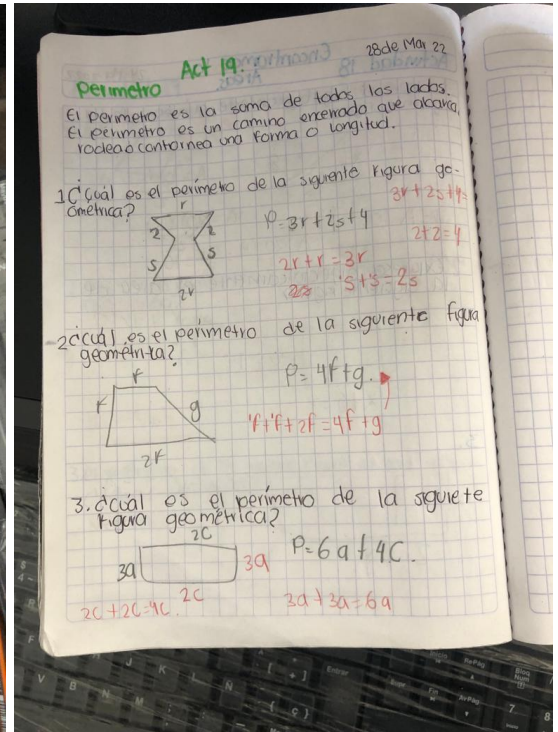 28 de Mar 22
Act 19.
Perimetro
El perimetro es la suma de todos los lados.
El perimetro es un camino encerrado que abarca,
rodea o contornea una forma o longitud.
1 ¿Cuál es el perimetro de la siguiente figura ge-
ométrica?
3r+2s+4
r
2
2
P=3r+2s+4
2+2=4
s
s
2r+r=3r
2s
s+s=2s
2r
2 ¿cuál es el perimetro de la siguiente figura
geométrica?
f
P=4f+g.
f
g
f+f+2f=4f+g
2f
3. ¿cuál es el perimetro de la siguiete
figura geométrica?
2C
P=6a+4C.
3a
3a
2C
2C+2C=4C.
3a+3a=6a